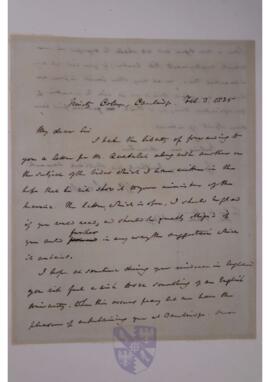 Trinity College, Cambridge. Feb. 3. 1835
My dear Sir
I take the liberty of forwarding to
you a letter for M. Quetelet along with another on
the subject of the tides which I have written in the
hope that he will show it to your ministry of the
marine. The letter, which is open, I should be glad
if you would read, and should be greatly obliged if
you could further in any way the suggestions which
it contains.
I hope at sometime during your residence in England
you will feel a wish to see something of an English
University. When this occurs pray let me have the
pleasure of entertaining you at Cambridge.